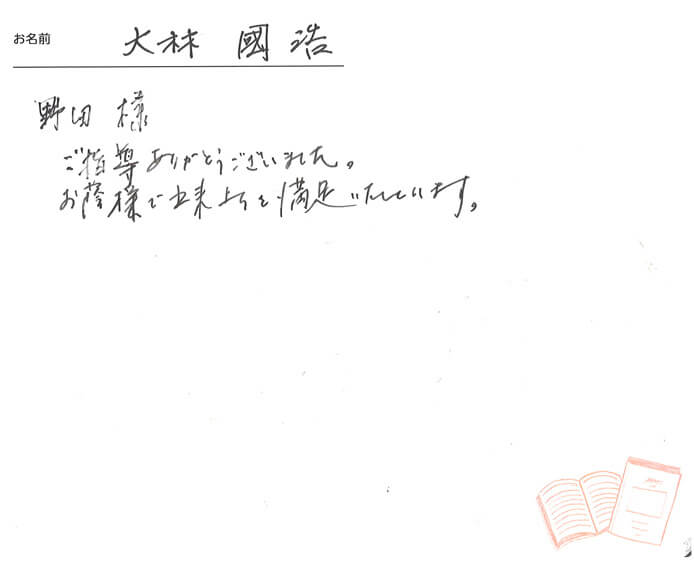 お名前 大林 國浩
野田 様
ご指導ありがとうございました。
お蔭様で出来上りも満足いたしています。